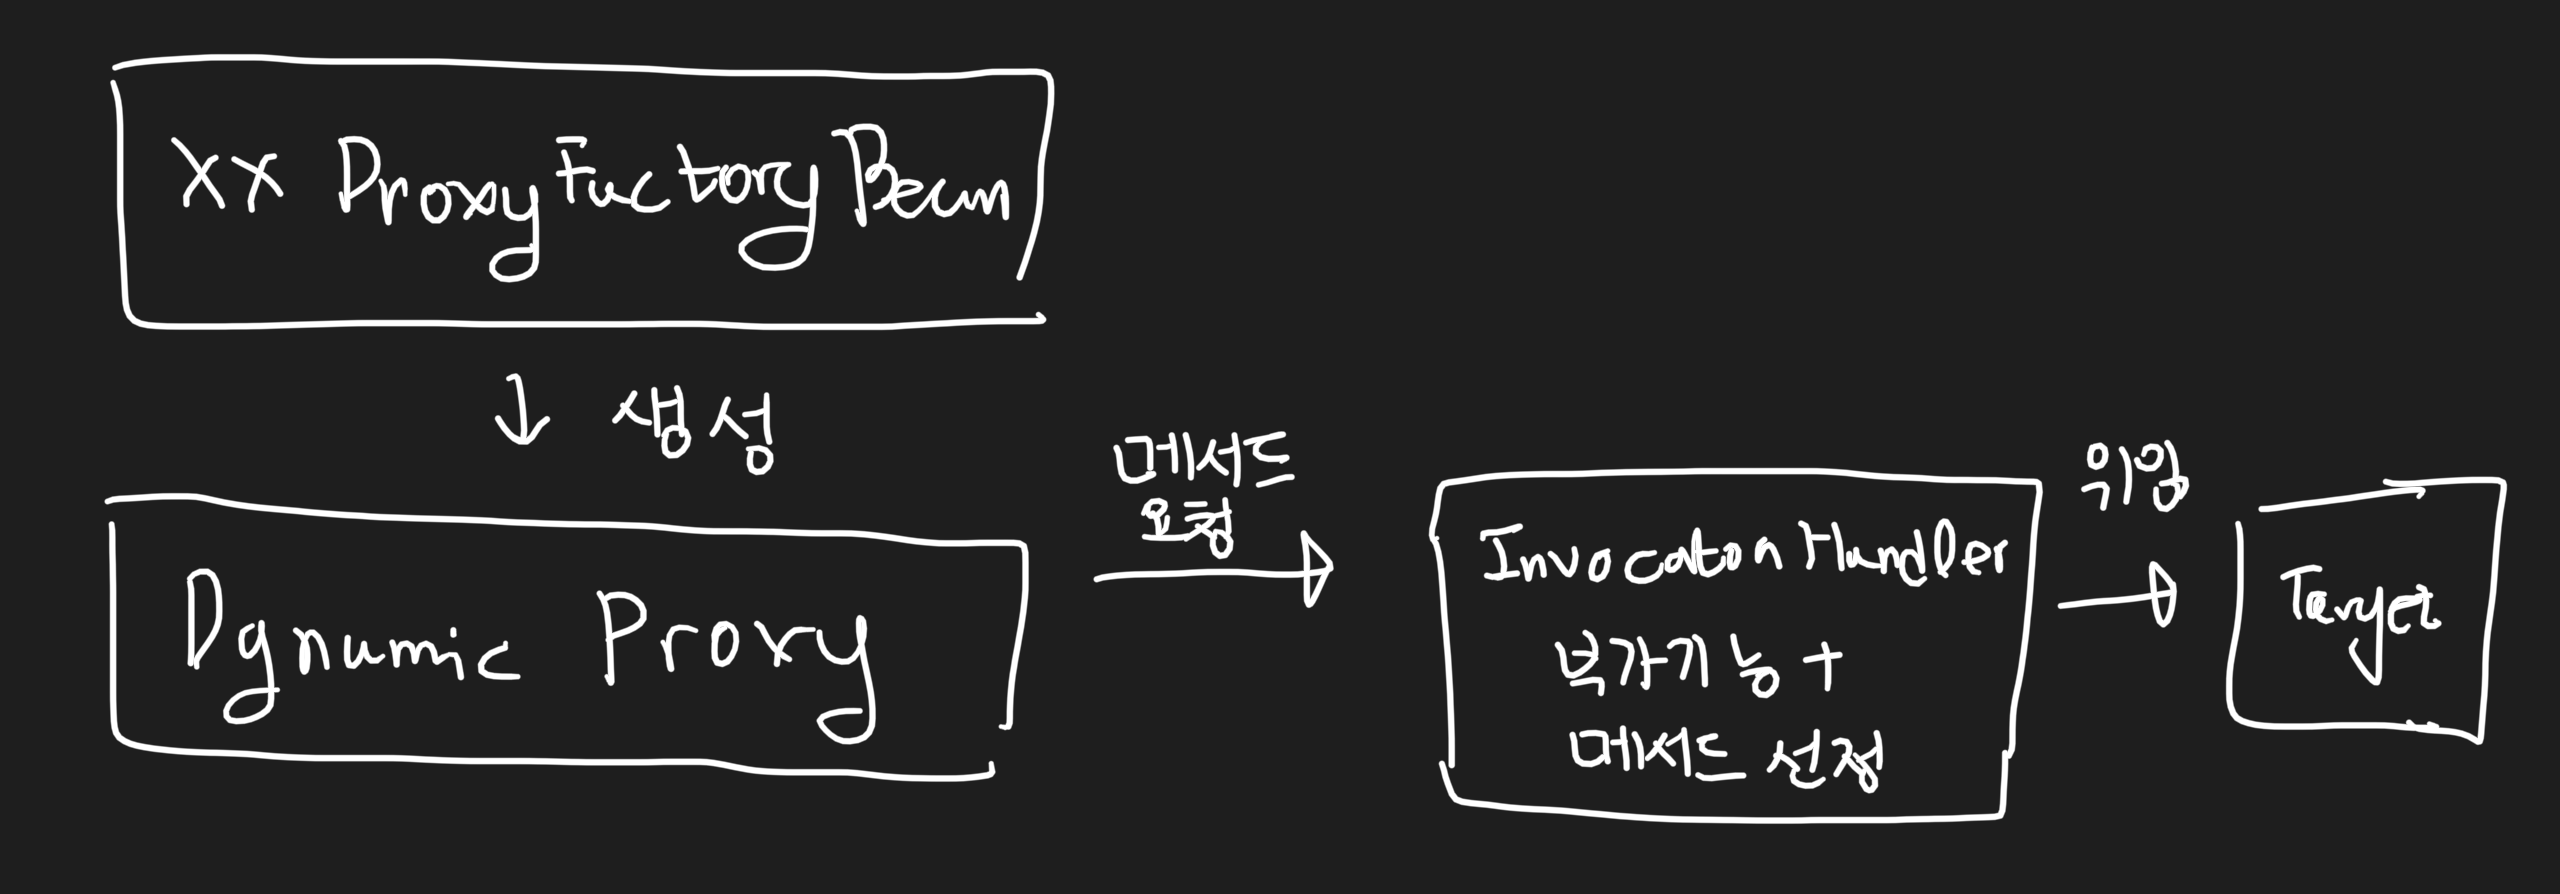 XX ProxyFactoryBean
생성
Dynamic Proxy
메서드
요청
InvocatonHandler
부가기능 +
메서드 선정
위임
Target